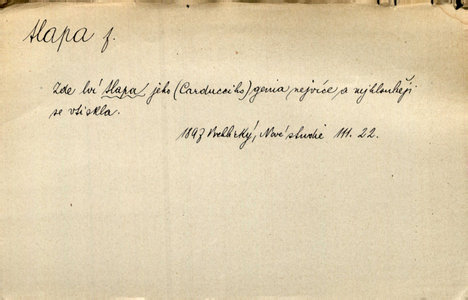 tlapa f.
Zde lví tlapa jeho (Carducciho) genia nejvíce a nejhlouběji
se vtiskla.
1897 Vrchlický, Nové studie 111. 22.